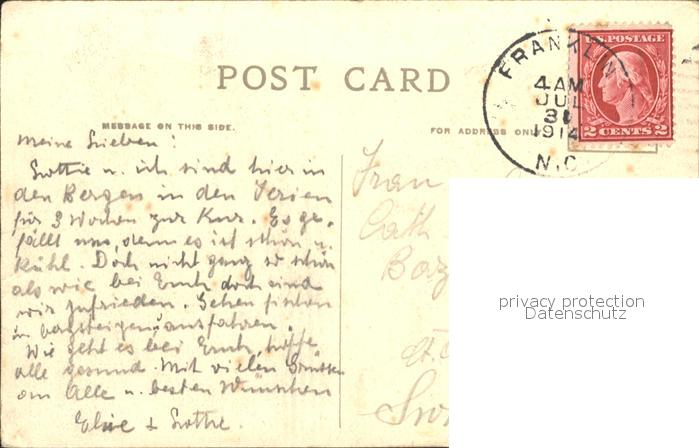 POST CARD
MESSAGE ON THIS SIDE.
FOR ADDRESS ONL
FRANKLIN
4 AM
JUL
31
1914
N.C.
U.S. POSTAGE
2 CENTS 2
Meine Lieben!
Lottie u. ich sind hier in
den Bergen in den Ferien
für 3 Wochen zur Kur. Es ge-
fällt uns, denn es ist schön u.
kühl. Doch nicht ganz so schön
als wie bei Euch doch sind
wir zufrieden. Gehen fischen
u. bergsteigen u. ausfahren.
Wie geht es bei Euch, hoffe
alle gesund. Mit vielen Grüssen
an Alle u. besten Wünschen
Elsie & Lottie.
Frau
Cath
privacy protection
Datenschutz